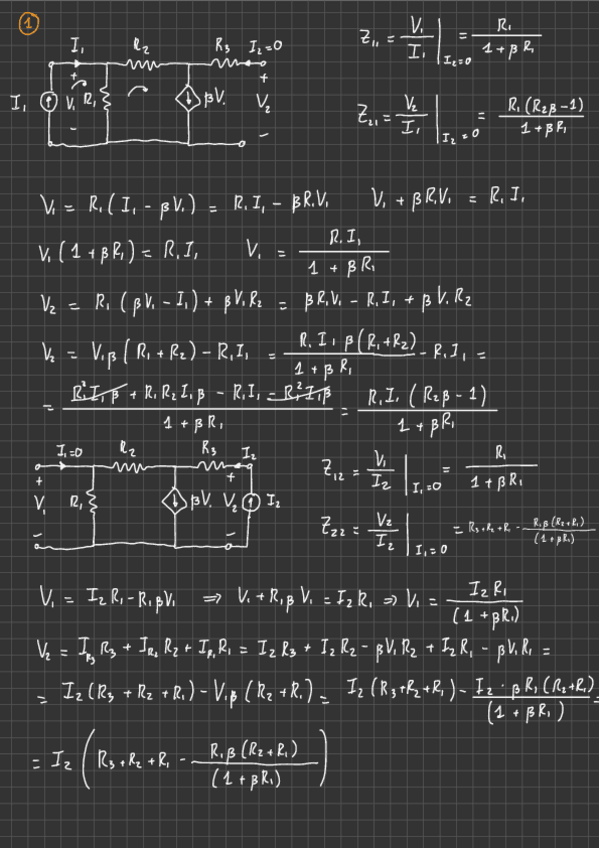 1
I₁ R₂ R₃ I₂=0
I₁ + V₁ - R₁ βV₁ + V₂ -
Z₁₁ = V₁/I₁ |I₂=0 = R₁/(1 + βR₁)
Z₂₁ = V₂/I₁ |I₂=0 = R₁(R₂β-1)/(1+βR₁)
V₁ = R₁(I₁ - βV₁) = R₁I₁ - βR₁V₁ V₁ + βR₁V₁ = R₁I₁
V₁(1+βR₁) = R₁I₁ V₁ = R₁I₁/(1 + βR₁)
V₂ = R₁(βV₁ - I₁) + βV₁R₂ = βR₁V₁ - R₁I₁ + βV₁R₂
V₂ = V₁β(R₁+R₂) - R₁I₁ = R₁I₁β(R₁+R₂)/(1 + βR₁) - R₁I₁ =
= (R₁²I₁β + R₁R₂I₁β - R₁I₁ - R₁²I₁β)/(1 + βR₁) = R₁I₁(R₂β - 1)/(1 + βR₁)
I₁=0 R₂ R₃ I₂
+ V₁ - R₁ βV₁ + V₂ - I₂
Z₁₂ = V₁/I₂ |I₁=0 = R₁/(1 + βR₁)
Z₂₂ = V₂/I₂ |I₁=0 = R₃+R₂+R₁ - R₁β(R₂+R₁)/(1+βR₁)
V₁ = I₂R₁-R₁βV₁ ⇒ V₁+R₁βV₁ = I₂R₁ ⇒ V₁ = I₂R₁/(1 + βR₁)
V₂ = I_R₃R₃ + I_R₂R₂ + I_R₁R₁ = I₂R₃ + I₂R₂ - βV₁R₂ + I₂R₁ - βV₁R₁ =
= I₂(R₃ + R₂ + R₁) - V₁β(R₂+R₁) = I₂(R₃+R₂+R₁) - I₂·βR₁(R₂+R₁)/(1 + βR₁) =
= I₂(R₃+R₂+R₁ - R₁β(R₂+R₁)/(1+βR₁))